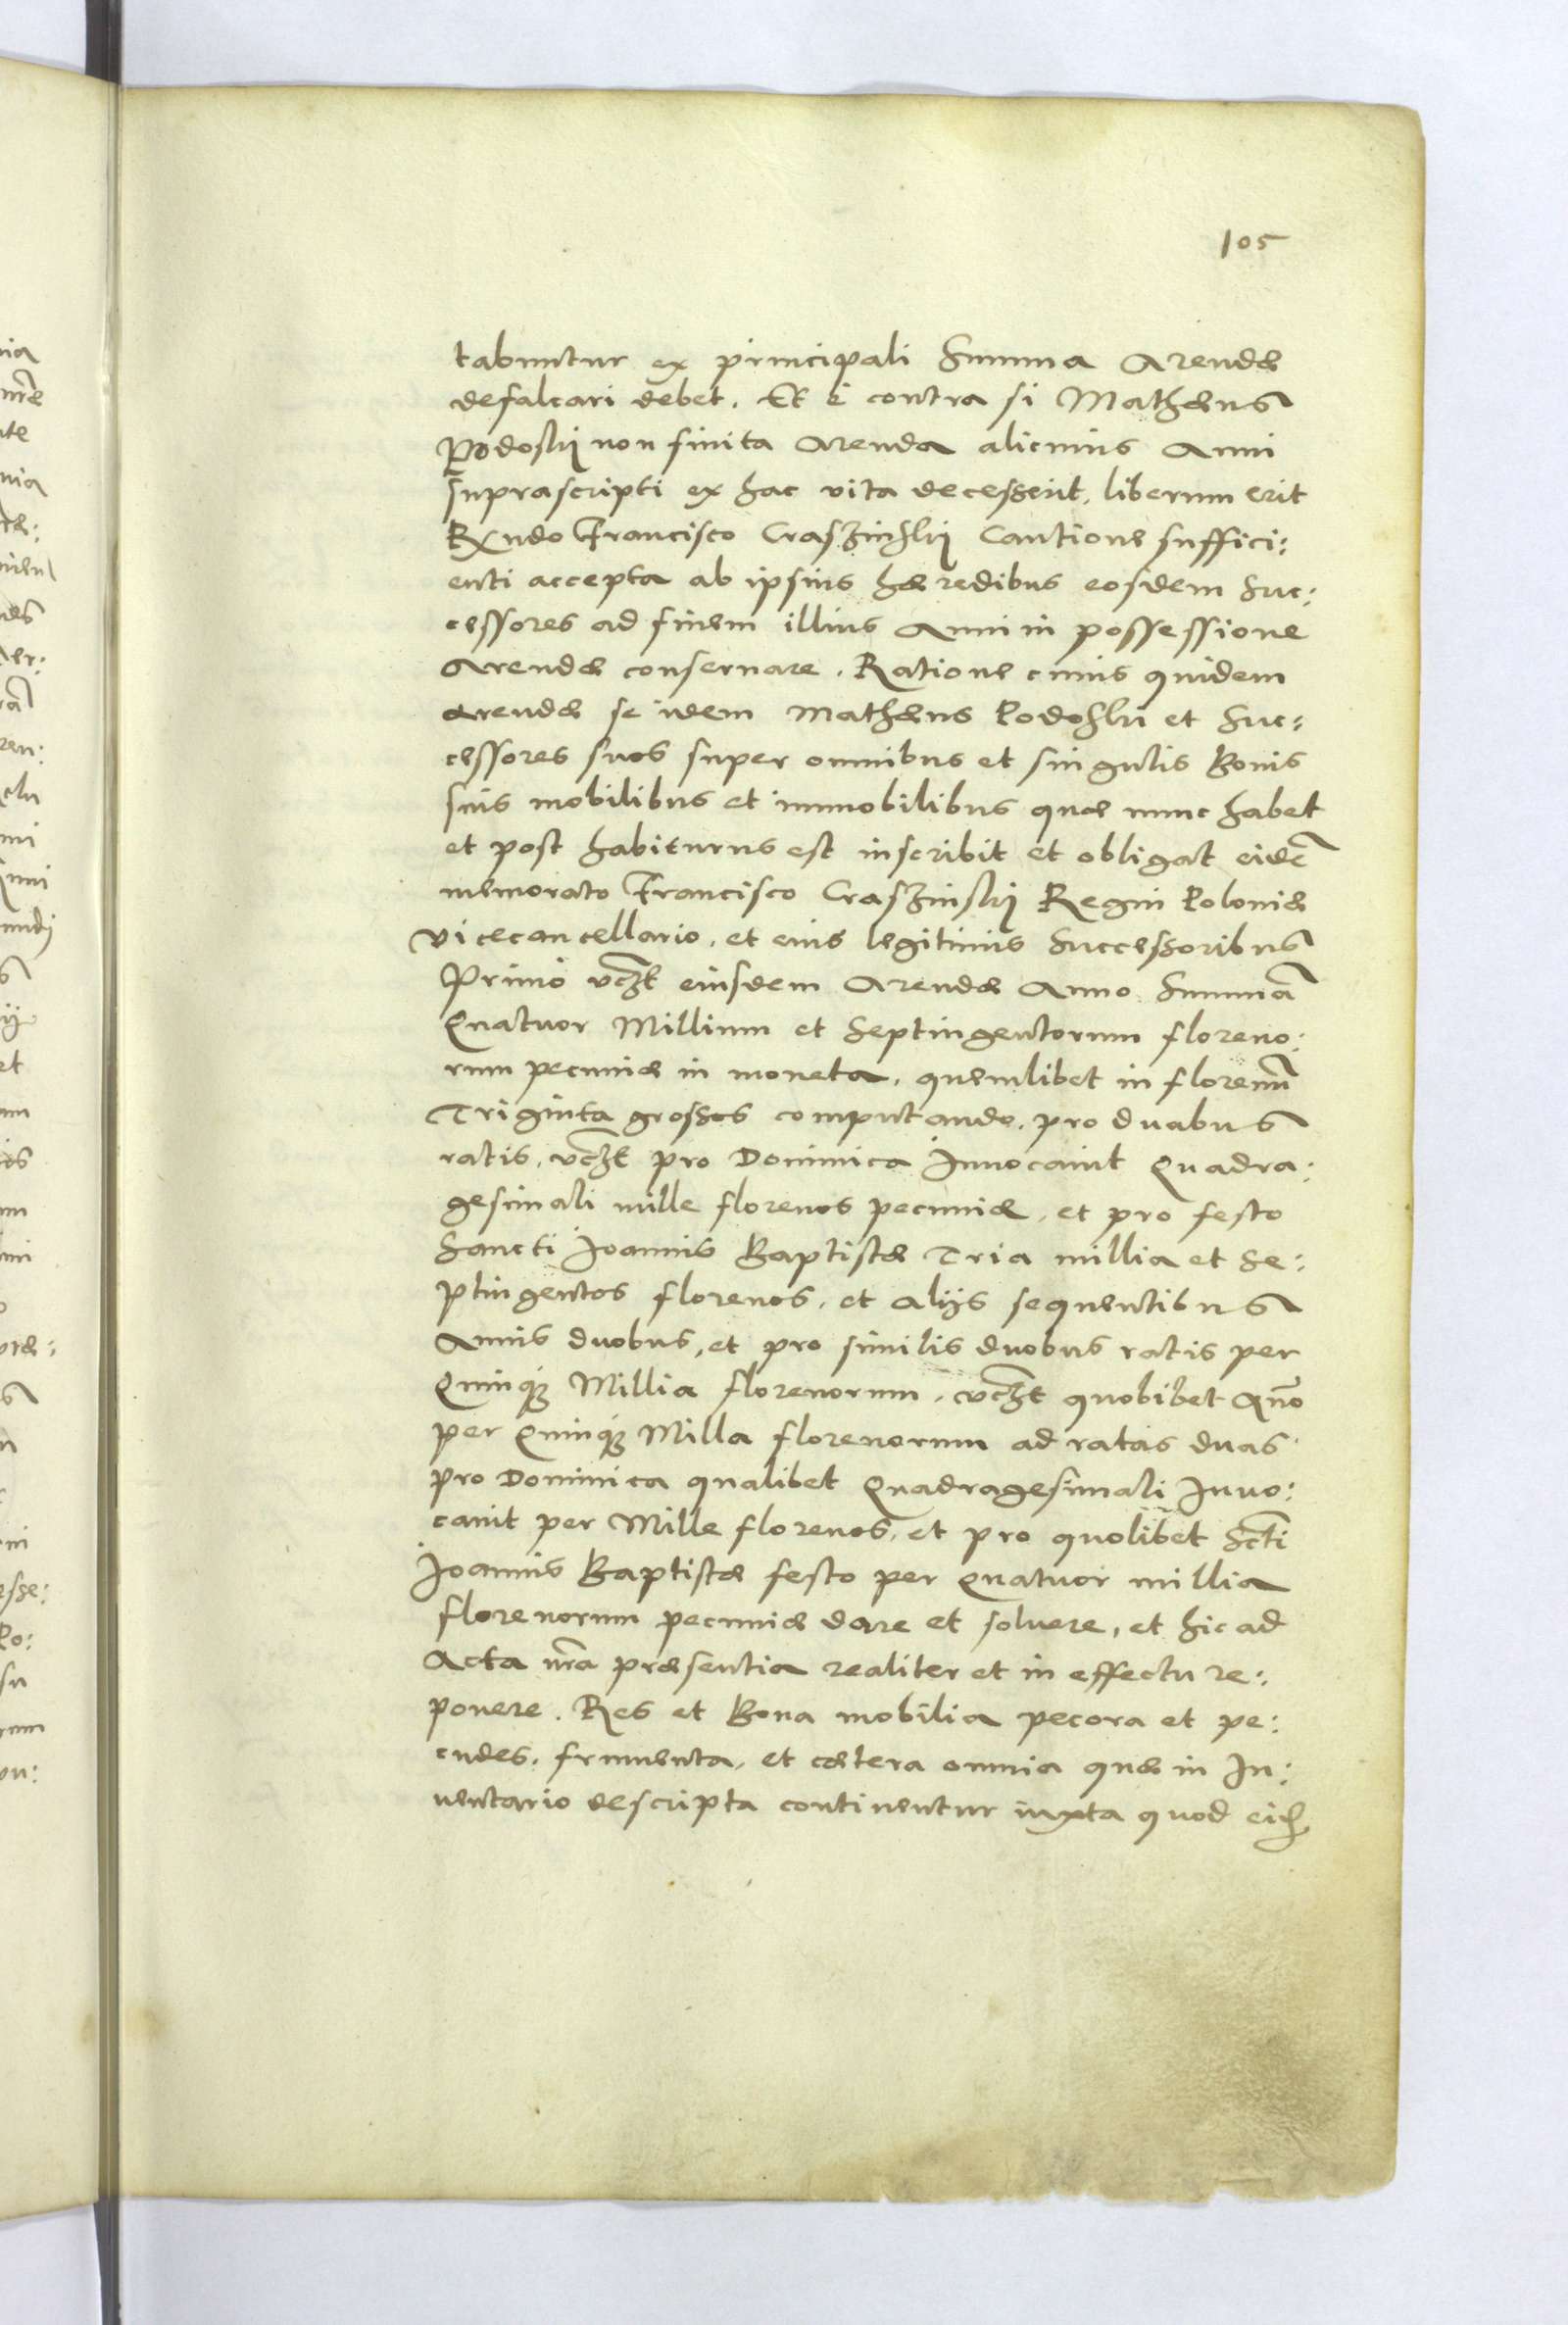 105
tabuntur ex principali Summa Arendæ
defalcari debet. Et è contra si Mathæus
Podoskij non finita Arenda alicuius Anni
suprascripti ex hac vita decesserit, liberum erit
Rndo Francisco Craszinskij Cautione suffici:
enti accepta ab ipsius hæredibus eosdem Suc:
cessores ad finem illius Anni in possessione
Arendæ conseruare. Ratione cuius quidem
arendæ se idem Mathæus Podoski et Suc:
cessores suos super omnibus et singulis Bonis
suis mobilibus et immobilibus quæ nunc habet
et post habiturus est inscribit et obligat eidē
memorato Francisco Craszinskij Regni Poloniæ
Vicecancellario, et eius legitimis Successoribus
Primò vczt eiusdem Arendæ Anno Summā
Quatuor Millium et Septingentorum floreno:
rum pecuniæ in moneta, quemlibet in florenū
Triginta grossos computando, pro duabus
ratis, vczt pro Dominica Inuocauit Quadra:
gesimali mille florenos pecuniæ, et pro festo
Sancti Joannis Baptistæ Tria millia et Se:
ptingentos florenos, et alijs sequentibus
Annis duobus, et pro similis duobus ratis per
Quinqȝ Millia florenorum, vczt quobibet Anō
per Quinqȝ Milla florenorum ad ratas duas
pro Dominica qualibet Quadragesimali Inuo:
cauit per Mille florenos, et pro quolibet Scti
Joannis Baptistæ festo per Quatuor millia
florenorum pecuniæ dare et soluere, et hic ad
Acta nra præsentia realiter et in effectu re:
ponere. Res et Bona mobilia pecora et pe:
cudes, frumenta, et cætera omnia quæ in In:
uentario descripta continentur iuxta quod